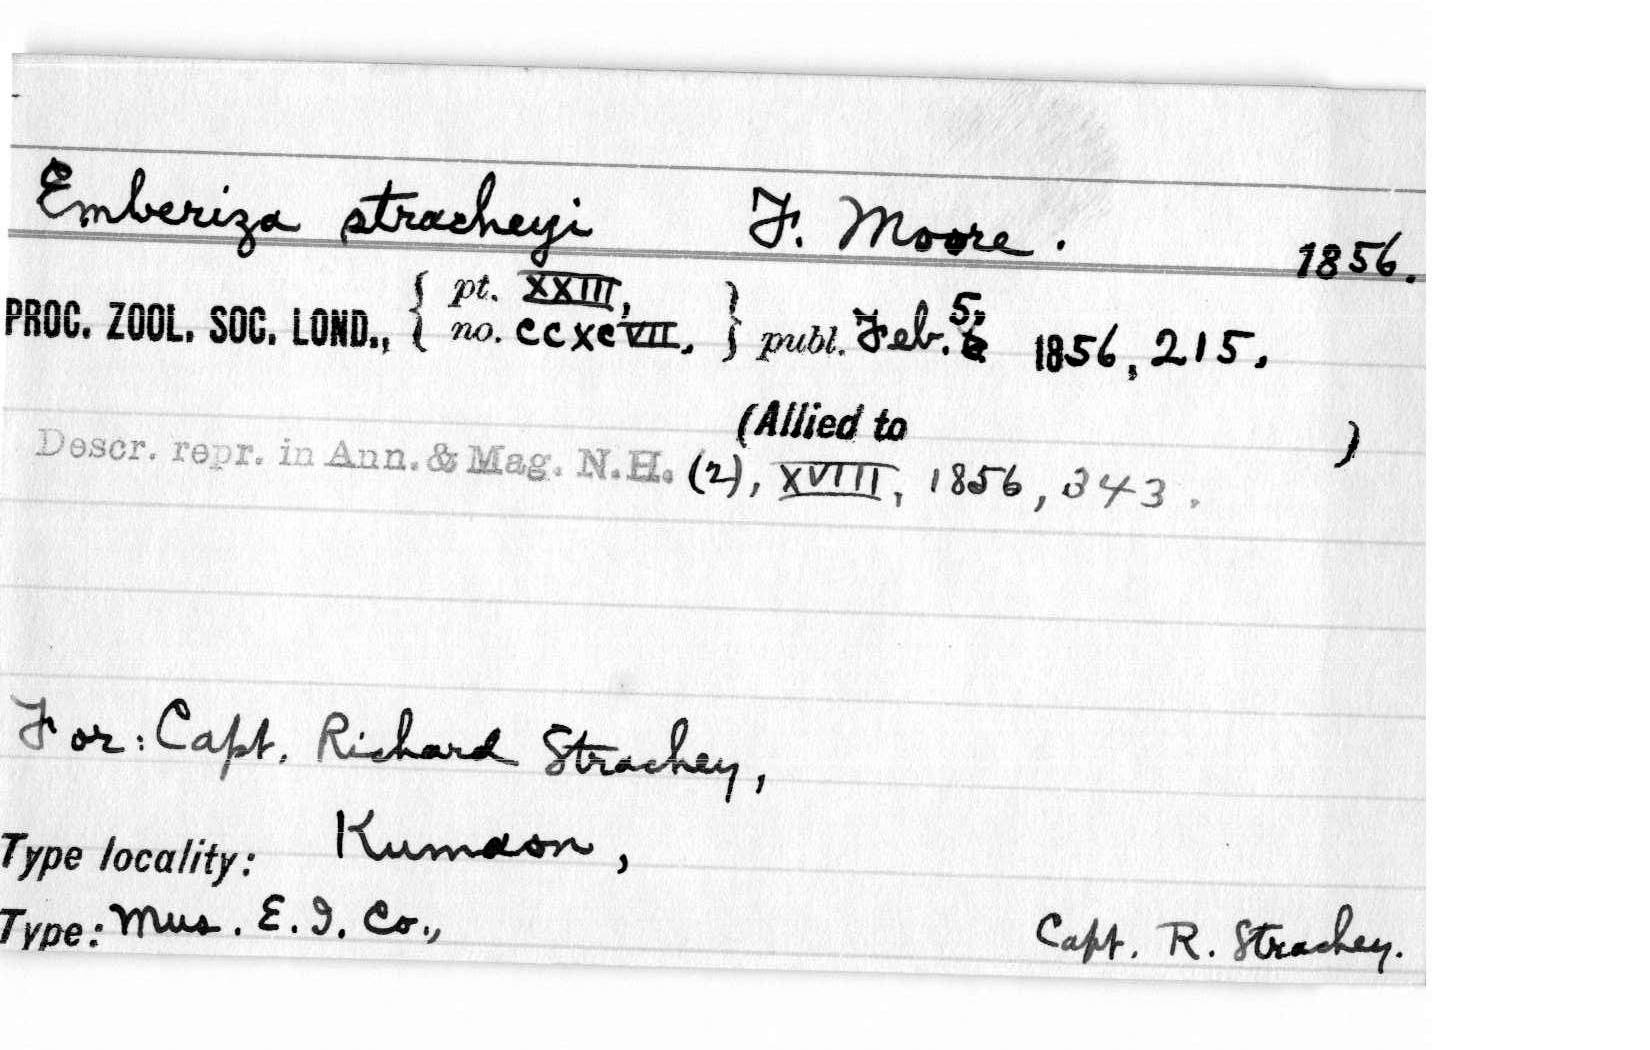 Emberiza stracheyi F. Moore. 1856.
PROC. ZOOL. SOC. LOND., { pt. XXIII, no. CCXCVII, } publ. Feb. 5, 1856, 215.
(Allied to )
Descr. repr. in Ann. & Mag. N.H. (2), XVIII, 1856, 343.
For: Capt. Richard Strachey,
Type locality: Kumaon,
Type: Mus. E. I. Co., Capt. R. Strachey.